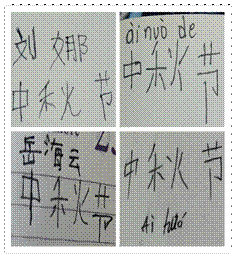 刘娜
中秋节
ài nuò de
中秋节
岳海云
中秋节
中秋节